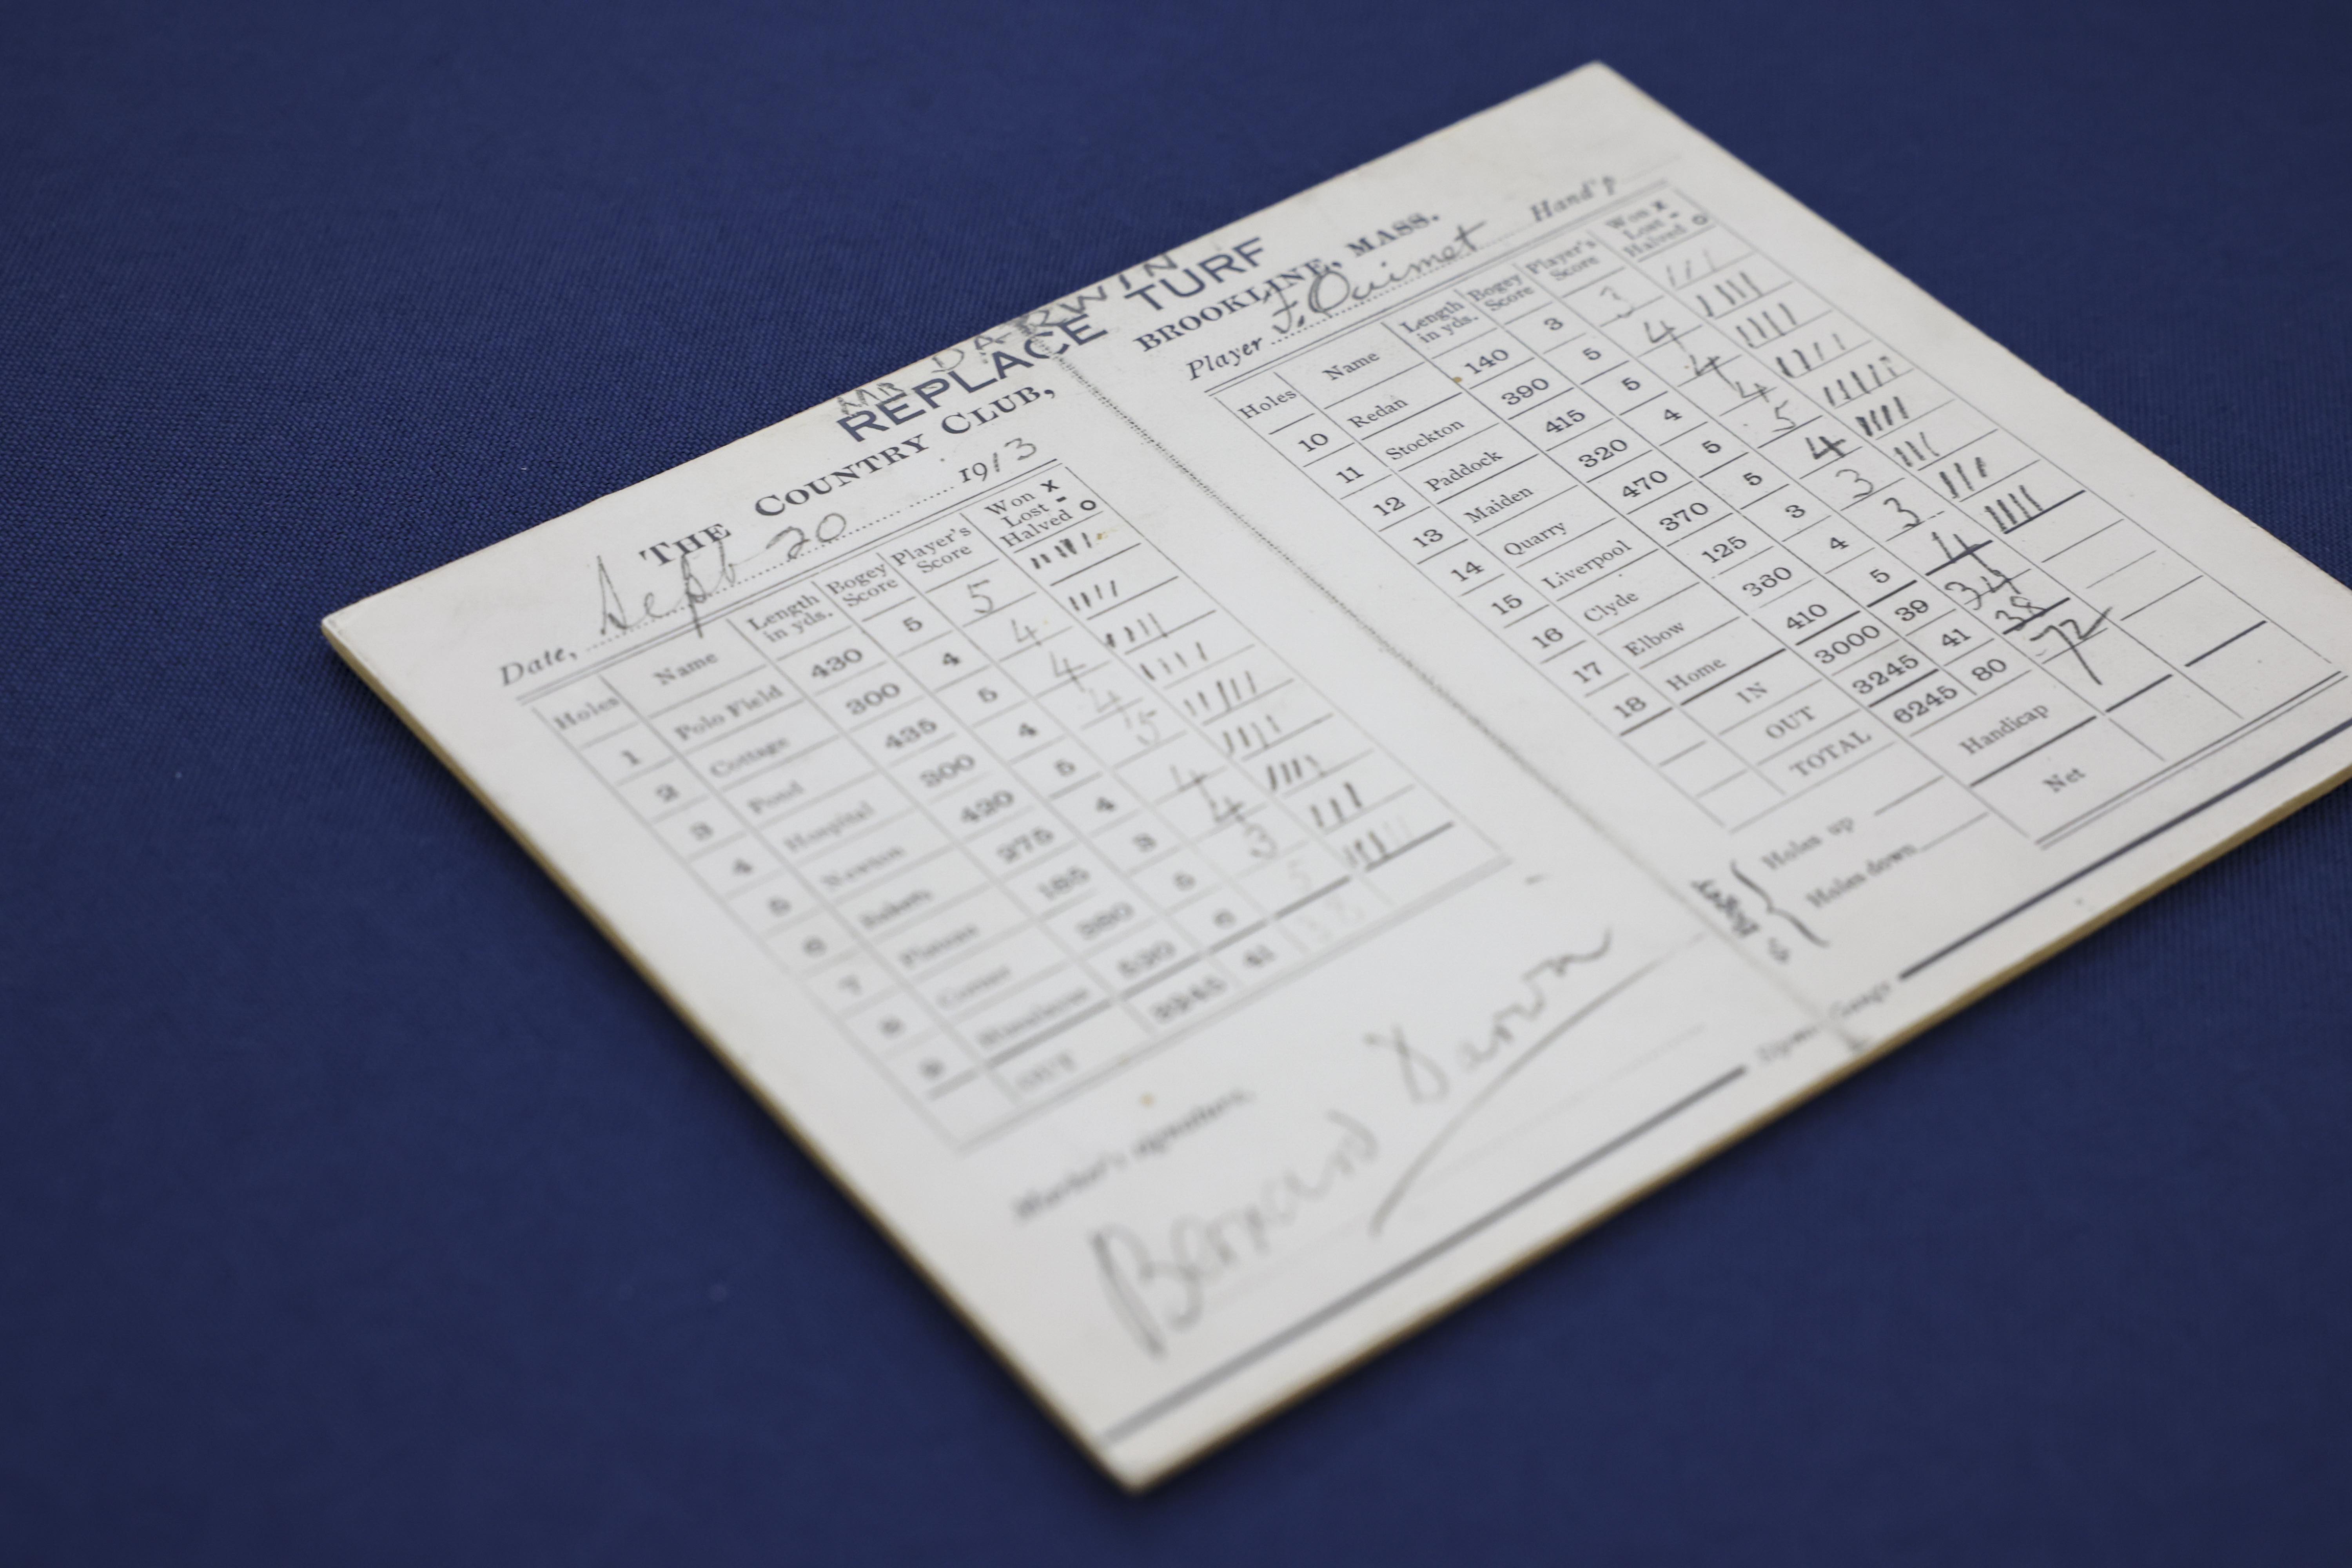 MR DARWIN
REPLACE TURF
THE COUNTRY CLUB,
Date, Sept 20 1913
Holes Name Length in yds. Bogey Score Player's Score Won X Lost - Halved O
1 Polo Field 430 5 5
2 Cottage 300 4 4
3 Pond 435 5 4
4 Hospital 300 4 4
5 Newton 420 5 5
6 Bakers 275 4 4
7 Plateau 185 3 4
8 Corner 380 5 3
9 Himalayas 520 6 5
OUT 3245 41 38
Marker's signature,
Bernard Darwin
BROOKLINE, MASS.
Player F. Ouimet Hand'p
Holes Name Length in yds. Bogey Score Player's Score Won X Lost - Halved O
10 Redan 140 3 3
11 Stockton 390 5 4
12 Paddock 415 5 4
13 Maiden 320 4 4
14 Quarry 470 5 5
15 Liverpool 370 5 4
16 Clyde 125 3 3
17 Elbow 360 4 3
18 Home 410 5 4
IN 3000 39 34
OUT 3245 41 38
TOTAL 6245 80 72
Handicap
Net
Bogey
Holes up
Holes down